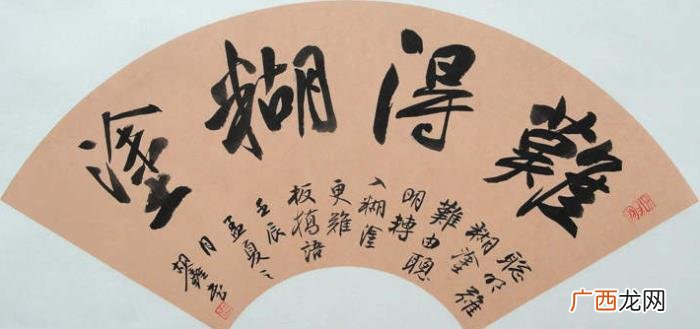 難得糊塗
聪明難
糊塗
難由聰
明轉
入糊塗
更難
板橋語
壬辰
孟夏之
月
广西龙网